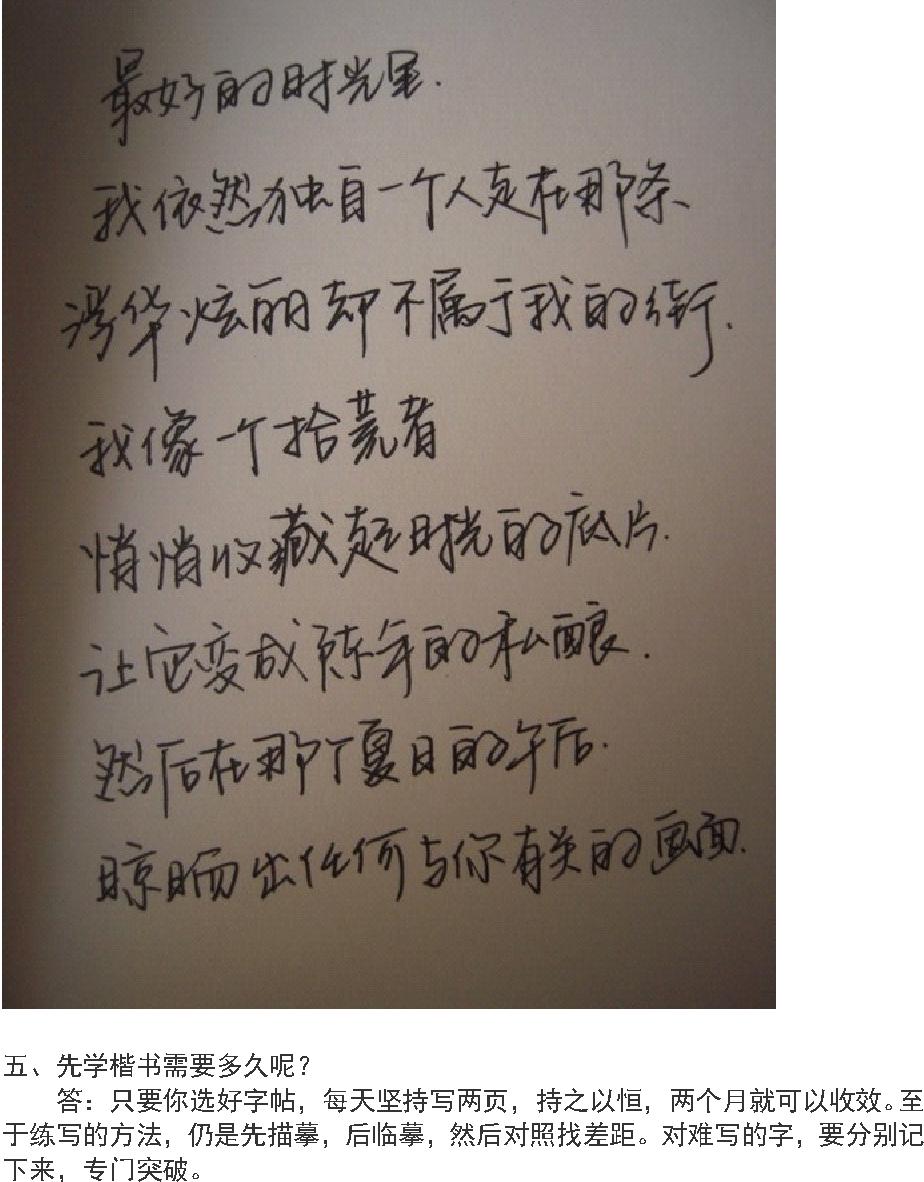 最好的时光里.
我依然独自一个人走在那条、
浮华炫丽却不属于我的街.
我像一个拾荒者
悄悄收藏起时光的底片.
让它变成陈年的私酿.
然后在那个夏日的午后.
晾晒出任何与你有关的画面.
五、先学楷书需要多久呢？
答：只要你选好字帖，每天坚持写两页，持之以恒，两个月就可以收效。至
于练写的方法，仍是先描摹，后临摹，然后对照找差距。对难写的字，要分别记
下来，专门突破。